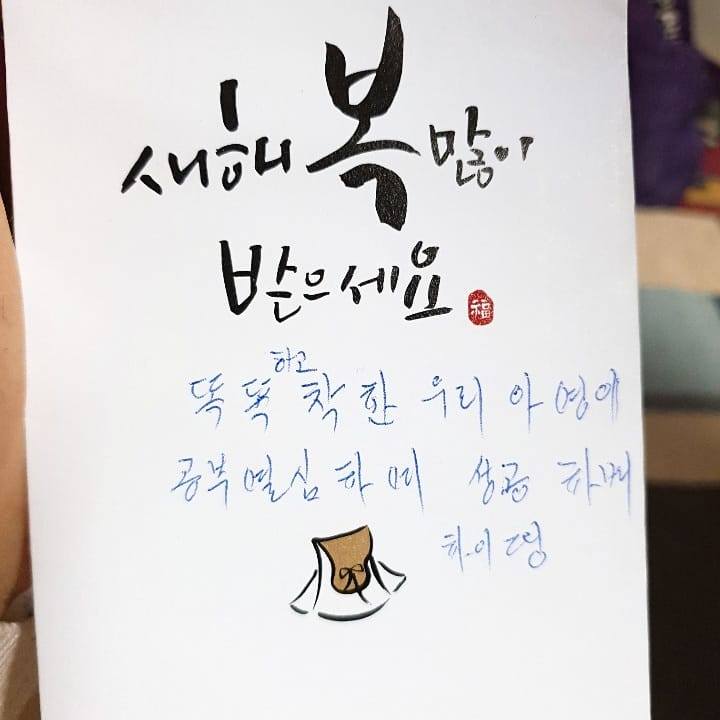 새해 복 많이
받으세요 福
똑똑하고 착한 우리 아영에
공부열심하며 성공하며
파이띵